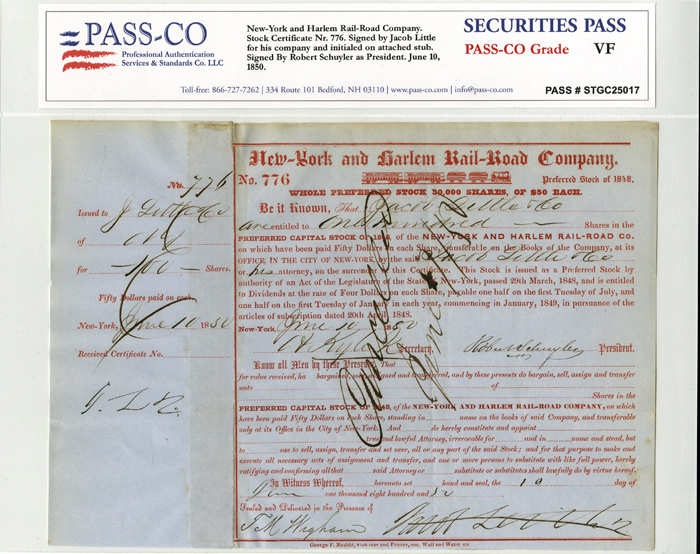 PASS-CO
Professional Authentication
Services & Standards Co. LLC
New-York and Harlem Rail-Road Company.
Stock Certificate Nr. 776. Signed by Jacob Little
for his company and initialed on attached stub.
Signed By Robert Schuyler as President. June 10,
1850.
SECURITIES PASS
PASS-CO Grade VF
Toll-free: 866-727-7262 | 334 Route 101 Bedford, NH 03110 | www.pass-co.com | info@pass-co.com
PASS # STGC25017
No. 776
Issued to J Little & Co
of N Y
for — 100 — Shares.
Fifty Dollars paid on each.
New-York, June 10 1850
Received Certificate No.
J. L & Co.
New-York and Harlem Rail-Road Company.
No. 776
Preferred Stock of 1848.
WHOLE PREFERRED STOCK 30,000 SHARES, OF $50 EACH.
Be it Known, That Jacob Little & Co
are entitled to One Hundred Shares in the
PREFERRED CAPITAL STOCK OF 1848, of the NEW-YORK AND HARLEM RAIL-ROAD CO.
on which have been paid Fifty Dollars on each Share, transferable on the Books of the Company, at its
OFFICE, IN THE CITY OF NEW-YORK, by the said Jacob Little & Co
or his attorney, on the surrender of this Certificate. This Stock is issued as a Preferred Stock by
authority of an Act of the Legislature of the State of New-York, passed 29th March, 1848, and is entitled
to Dividends at the rate of Four Dollars on each Share, payable one half on the first Tuesday of July, and
one half on the first Tuesday of January in each year, commencing in January, 1849, in pursuance of the
articles of subscription dated 20th April, 1848.
New-York, June 10 1850
Secretary. Robert Schuyler President.
Cancelled
June
Know all Men by these Presents, That
for value received, ha bargained, sold, assigned and transferred, and by these presents do bargain, sell, assign and transfer
unto of
Shares in the
PREFERRED CAPITAL STOCK OF 1848, of the NEW-YORK AND HARLEM RAIL-ROAD COMPANY, on which
have been paid Fifty Dollars on each Share, standing in name on the books of said Company, and transferable
only at its Office in the City of New-York. And do hereby constitute and appoint
true and lawful Attorney, irrevocable for and in name and stead, but
to use to sell, assign, transfer and set over, all or any part of the said Stock; and for that purpose to make and
execute all necessary acts of assignment and transfer, and one or more persons to substitute with like full power, hereby
ratifying and confirming all that said Attorney or substitute or substitutes shall lawfully do by virtue hereof.
In Witness Whereof, hereunto set hand and seal, the 19 day of
June one thousand eight hundred and 50
Sealed and Delivered in the Presence of
T. M. Wigham
George F. Nesbitt, Stationer and Printer, cor. Wall and Water sts.